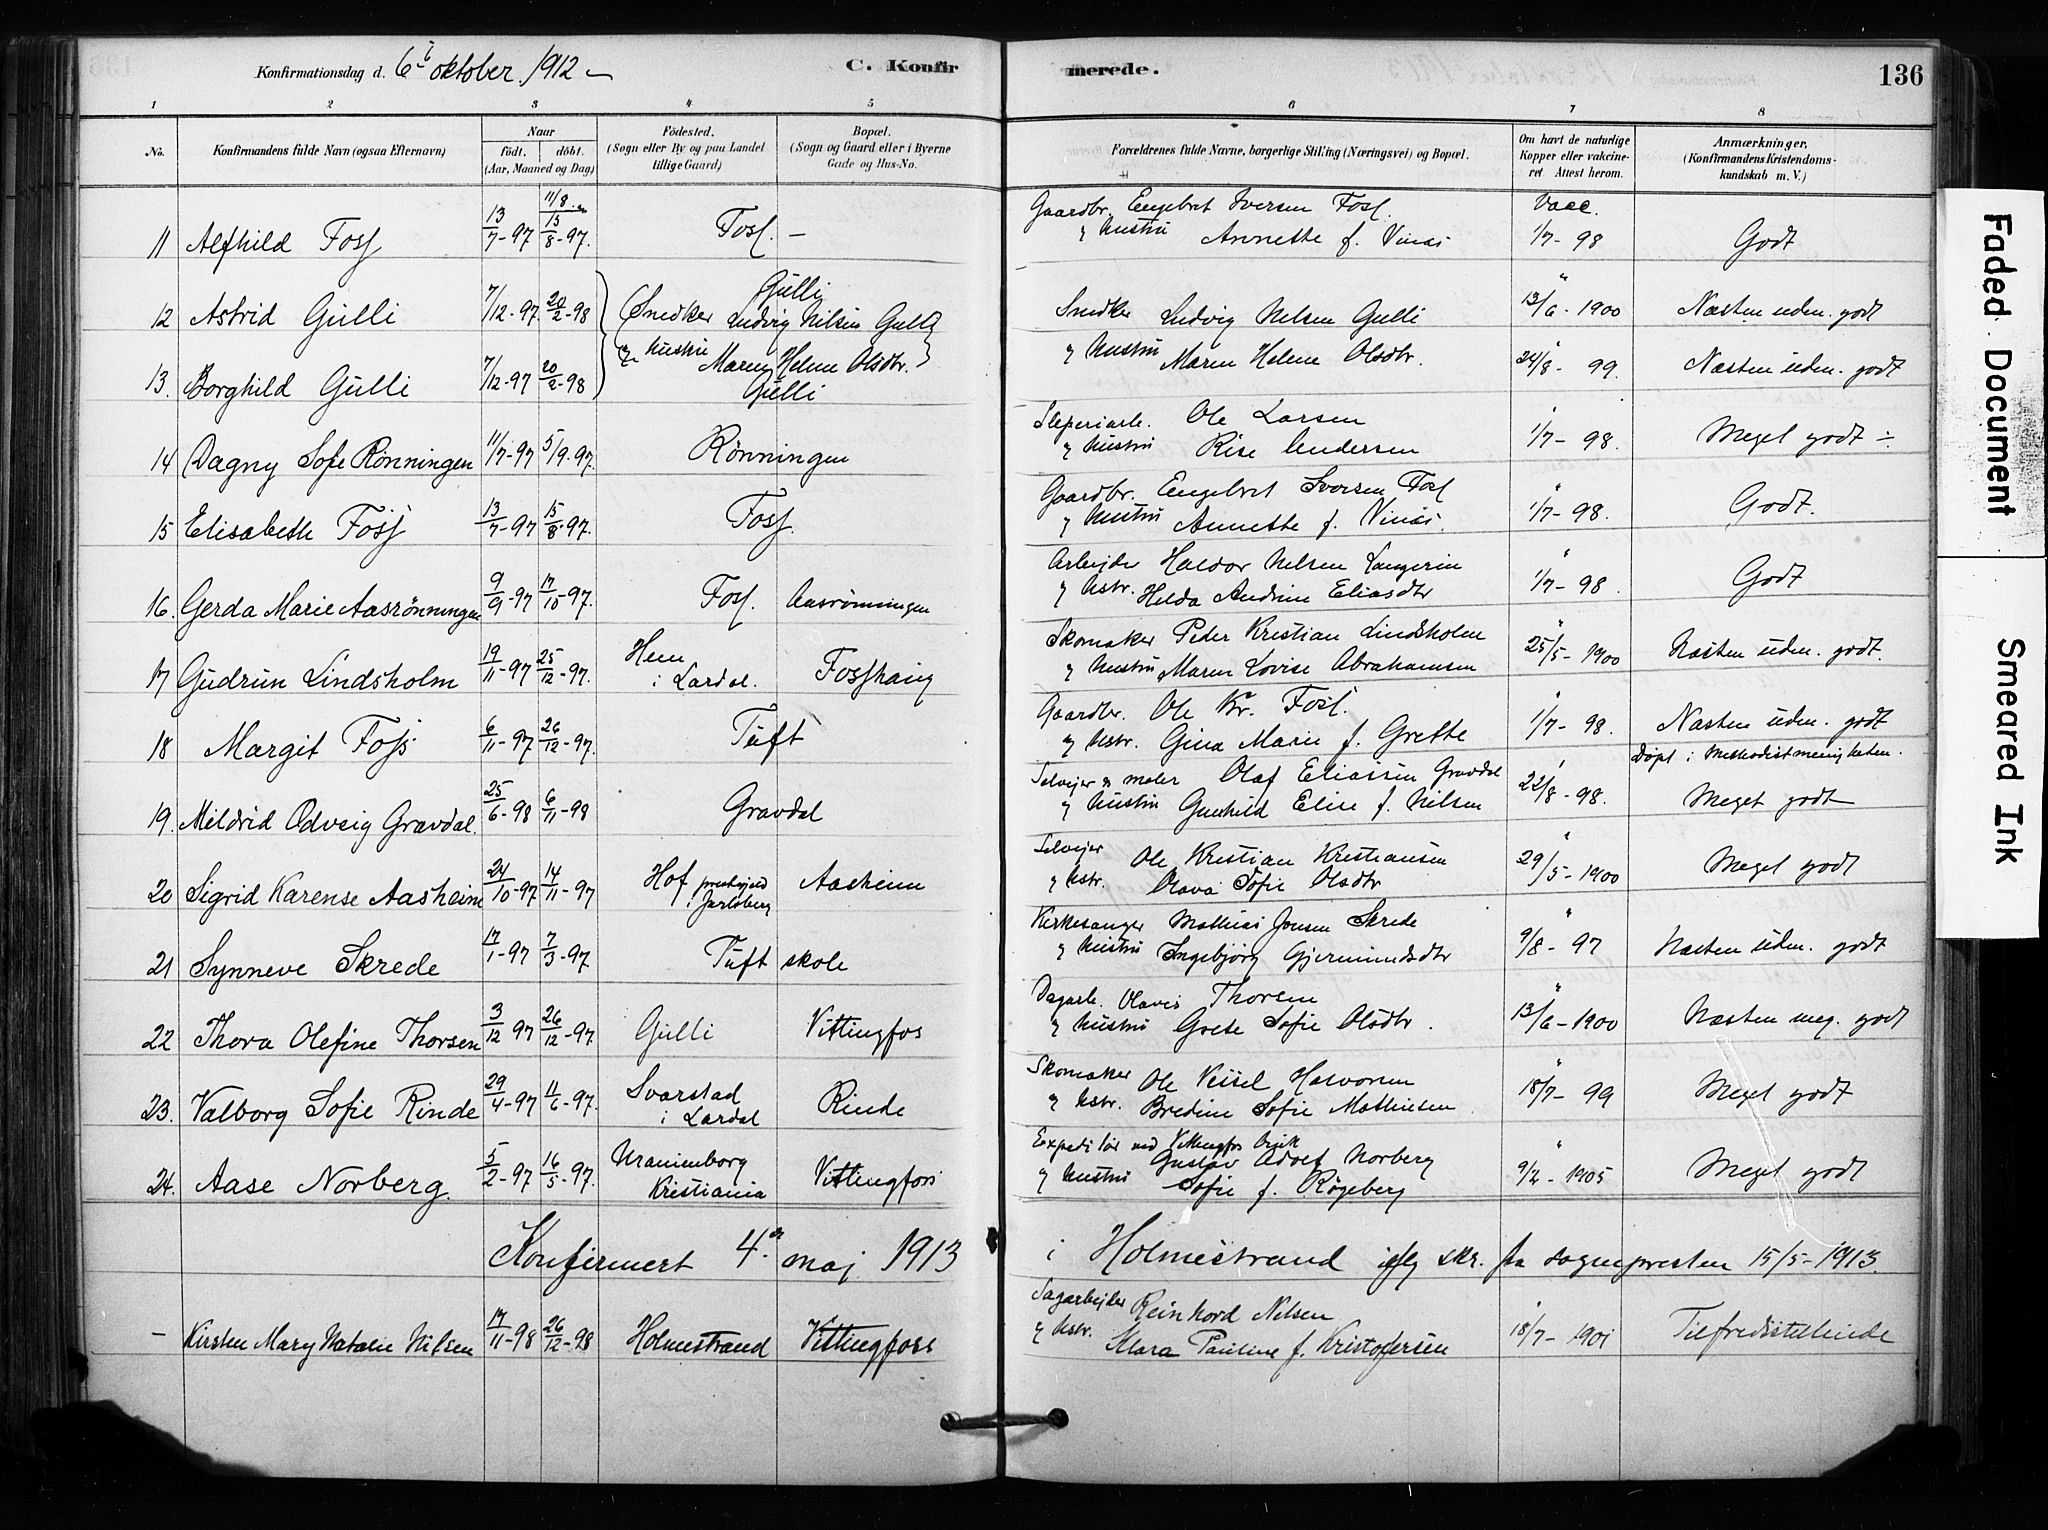 Konfirmationsdag d. 6te oktober 1912
C. Konfir merede. 136
1 2 3 4 5 6 7 8
No. Konfirmandens fulde Navn (ogsaa Efternavn) Naar födt. döbt. (Aar, Maaned og Dag) Födested. (Sogn eller By og paa Landet tillige Gaard) Bopæl. (Sogn og Gaard eller i Byerne Gade og Hus-No. Forældrenes fulde Navne, borgerlige Stilling (Næringsvei) og Bopæl. Om havt de naturlige Kopper eller vakcineret Attest herom. Anmærkninger. (Konfirmandens Kristendomskundskab m. V.)
11/8 Gaardbr. Engebret Iversen Foss. Vacc.
11 Alfhild Foss 13/7-97 15/8-97. Foss. — & Hustru Annette f. 1/7-98 Godt
Gulli
12 Astrid Gulli 7/12-97 20/2-98 (Snedker Ludvig Nilsen Gulli Snedker Ludvig Nilsen Gulli 13/6-1900 Næsten uden. godt
& Hustru Maren Helene Olsdtr.) & Hustru Maren Helene Olsdtr.
13. Borghild Gulli 7/12-97 20/2-98 Gulli 24/8-99. Næsten uden. godt
Sliperiarb. Ole Larsen
14 Dagny Sofie Rönningen 11/7-97 5/9-97. Rönningen & Hustru Rise Andersen 1/7-98. Meget godt
Gaardbr. Engebret Iversen Foss
15 Elisabeth Foss 13/7-97 15/8-97. Foss. & Hustru Annette f. 1/7-98. Godt.
Arbejder Haldor Nilsen Langerin
16. Gerda Marie Aasrönningen 9/9-97 17/10-97. Foss. Aasrönningen & Hstr. Helda Andrine Eliasdtr 1/7-98. Godt
Skomaker Peder Kristian Lindsholm
17 Gudrun Lindsholm 19/11-97 25/12-97. Hem i Lardal. Fosshaug & Hustru Maren Lovise Abrahamsen 25/5-1900 Næsten uden. godt.
Gaardbr. Ole Kr. Foss.
18 Margit Foss 6/11-97 26/12-97. Tuft & Hstr. Gina Marie f. Grette 1/7-98. Næsten uden. godt
Döpt i Methodistmenigheten.
Selvejer & maler Olaf Eliassen Gravdal
19. Mildrid Odveig Gravdal. 25/6-98 6/11-98 Gravdal & Hustru Gunhild Elise f. Nilsen 22/8-98. Meget godt
Selvejer Ole Kristian Kristiansen
20 Sigrid Karense Aasheim 24/10-97 14/11-97 Hof prestegjeld i Jarlsberg Aasheim & Hstr. Olava Sofie Olsdtr 29/5-1900 Meget godt
Kirkesanger Mathias Jonsen Skrede
21 Synneve Skrede 17/1-97 7/3-97. Tuft skole & Hustru Ingebjörg Gjermundsdtr 9/8-97 Næsten uden. godt
Dagarb. Olavis Thorsen
22 Thora Olefine Thorsen 3/12 97 26/12-97. Gulli Vittingfos & Hustru Grete Sofie Olsdtr. 13/6-1900 Næsten meg. godt
Skomaker Ole Veisel Halvorsen
23. Valborg Sofie Rinde 29/4-97 11/6-97. Svarstad i Lardal Rinde & Hstr. Bredine Sofie Mathisen 18/7-99 Meget godt
Expeditör ved Vittingfos Bruk Gustav Adolf Norberg
24. Aase Norberg. 5/2-97 16/5-97. Uranienborg Kristiania Vittingfoss & Hustru Sofie f. Rögeberg 9/2-1905 Meget godt
Konfirmert 4de maj 1913 i Holmestrand iflg skr. fra sognepresten 15/5-1913.
Sagarbejder Reinhard Nilsen
— Kirsten Mary Natalie Nilsen 17/11-98 26/12-98 Holmestrand Vittingfoss & Hstr. Klara Pauline f. Kristofersen 18/7-1901 Tilfredsstillende
Faded Document
Smeared Ink